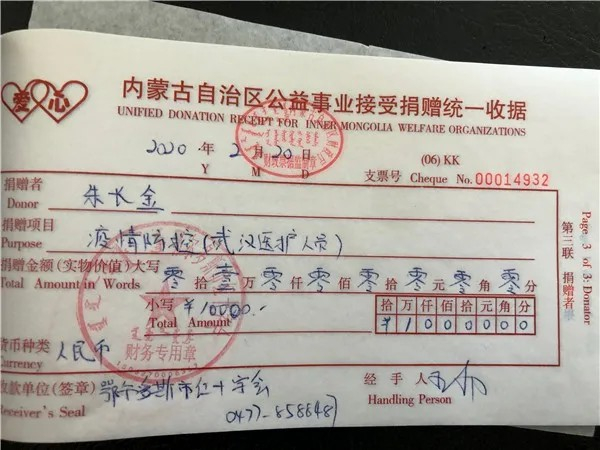 爱心
内蒙古自治区公益事业接受捐赠统一收据
UNIFIED DONATION RECEIPT FOR INNER MONGOLIA WELFARE ORGANIZATIONS
2020 年 2 月 20 日 (06) KK
Y M D 支票号 Cheque No. 00014932
捐赠者 朱长金
Donor
捐赠项目 疫情防控(武汉医护人员)
Purpose
捐赠金额(实物价值)大写 零拾壹万零仟零佰零拾零元零角零分
Total Amount in Words
小写 ¥10000.- 拾万仟佰拾元角分
Total Amount ¥1000000
货币种类 人民币
Currency
财务专用章
收款单位(签章) 鄂尔多斯市红十字会 经手人
Receiver's Seal 0477-8588487 Handling Person
第三联 捐赠者
Page 3 of 3: Donator